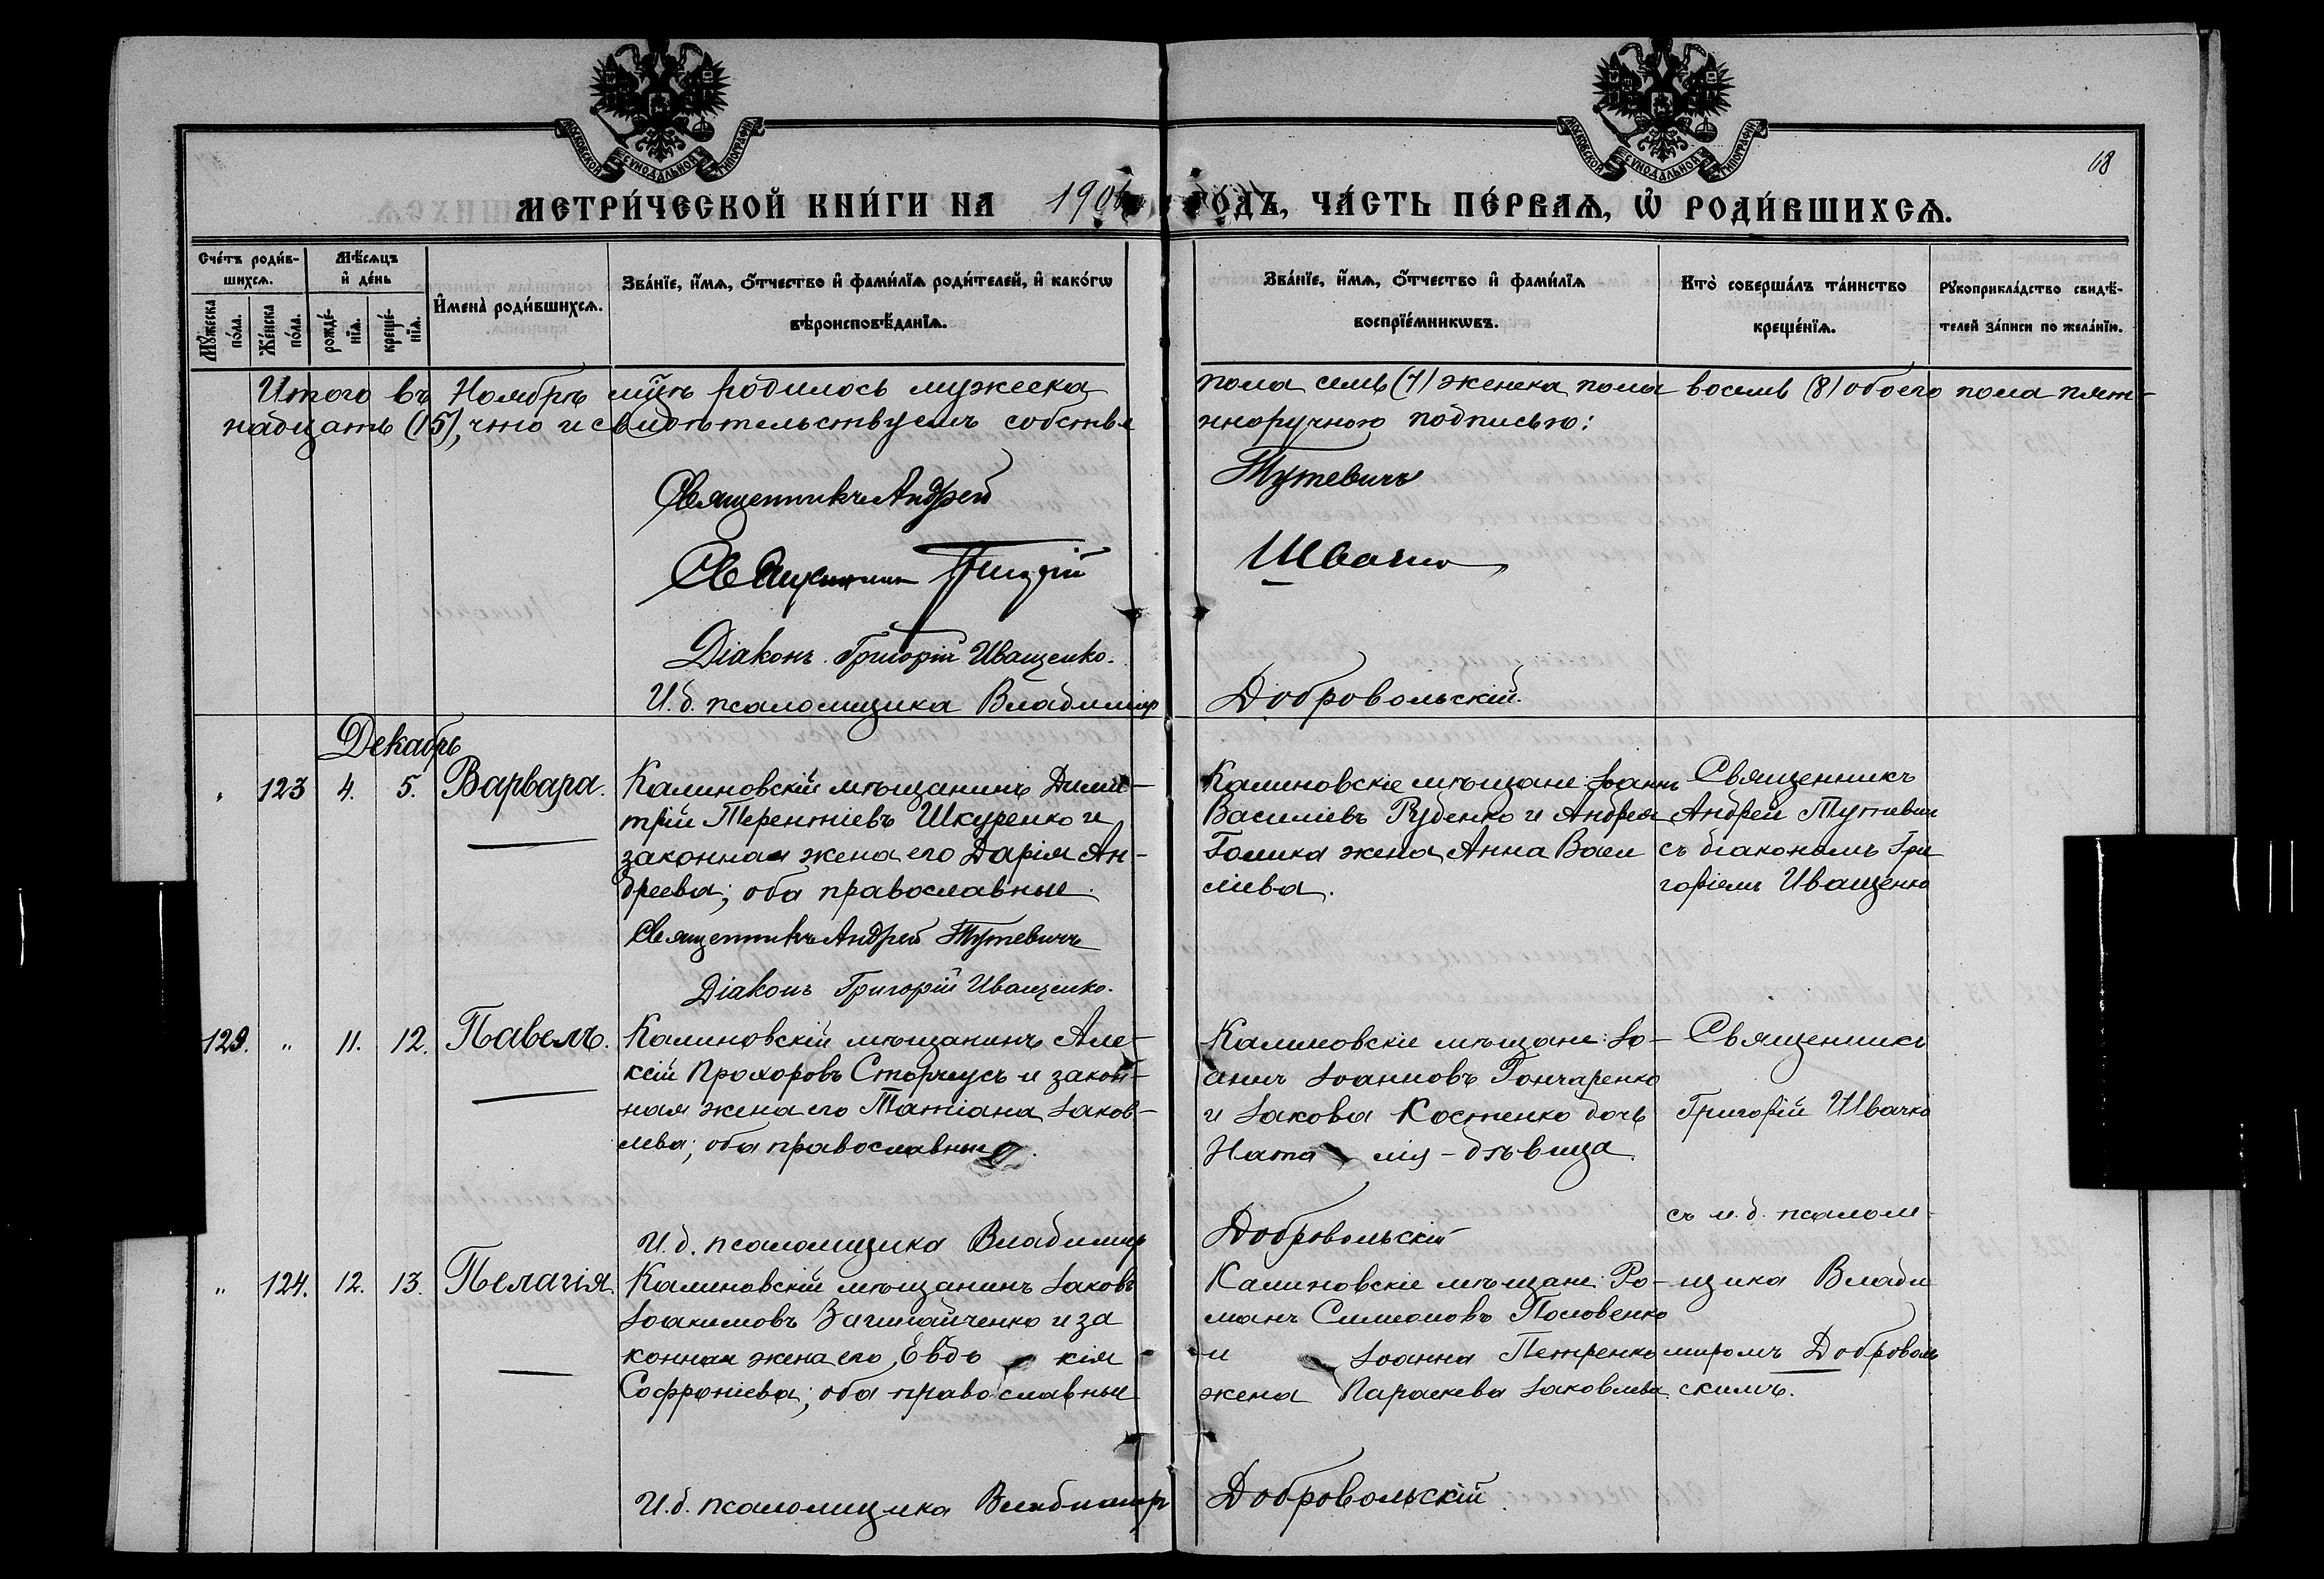 МОСКОВСКОЙ СѴНОДАЛЬНОЙ ТИПОГРАФІИ
МОСКОВСКОЙ СѴНОДАЛЬНОЙ ТИПОГРАФІИ
18
МЕТРИ́ЧЕСКОЙ КНИ́ГИ НА 190 ГО́ДЪ, ЧА́СТЬ ПЕ́РВАѦ, Ѡ҆ РОДИ́ВШИХСѦ.
Сче́тъ роди́в-
шихсѧ.
Мꙋ́жеска по́ла.
Же́нска по́ла.
Мѣ́сѧцъ
и҆ де́нь
рожде́-
нїѧ.
креще́-
нїѧ.
И҆мена̀ роди́вшихсѧ.
Зва́нїе, и҆́мѧ, ѻ҆́тчество и҆ фами́лїѧ роди́телей, и҆ како́гѡ
вѣроисповѣ́данїѧ.
Зва́нїе, и҆́мѧ, ѻ҆́тчество и҆ фами́лїѧ
воспрїе́мникѡвъ.
Кто̀ соверша́лъ та́инство
креще́нїѧ.
Рꙋкоприкла́дство свидѣ́-
телей за́писи по жела́нїю.
Итого въ Ноябрѣ мцѣ родилось мужеска пола семь (7) женска пола восемь (8) обоего пола пят-
надцать (15), что и свидѣтельствуемъ собстве нноручною подписью:
Священникъ Андрей Тутевичъ
Священник Григорій Швачко
Діаконъ Григорій Иващенко.
И.д. псаломщика Владимір Добровольскій.
Декабрь
„ 123 4. 5. Варвара.
Калиновскій мѣщанинъ Дими-
трій Терентіевъ Шкуренко и
законная жена его Дарія Ан-
дреева; оба православные.
Священникъ Андрей Тутевичъ
Діаконъ Григорій Иващенко.
Калиновскіе мѣщане: Іоаннъ
Василіевъ Руденко и Андрея
Голика жена Анна Васи
ліева.
Священникъ
Андрей Тутевич
съ діакономъ Гри
горіемъ Иващенко
129. „ 11. 12. Павелъ.
Калиновскій мѣщанинъ Але-
ксій Прохоровъ Сторчеусъ и закон-
ная жена его Татіана Іаков-
лева; оба православные.
И.д. псаломщика Владимир Добровольскій
Калиновскіе мѣщане: Іо-
аннъ Іоанновъ Гончаренко
и Іакова Костенко дочь
Ната лія - дѣвица.
Священникъ
Григорій Швачко
съ и.д. псалом-
щика Влади
миромъ Доброволь
скимъ.
„ 124. 12. 13. Пелагія.
Калиновскій мѣщанинъ Іаковъ
Іоакимовъ и за
конная жена его Евдо кія
Софроніева; оба православные
И.д. псаломщика Владимир Добровольскій.
Калиновскіе мѣщане: Ро-
манъ Симеоновъ Половенко
и Іоанна Петренко
жена Параскева Іаковлева